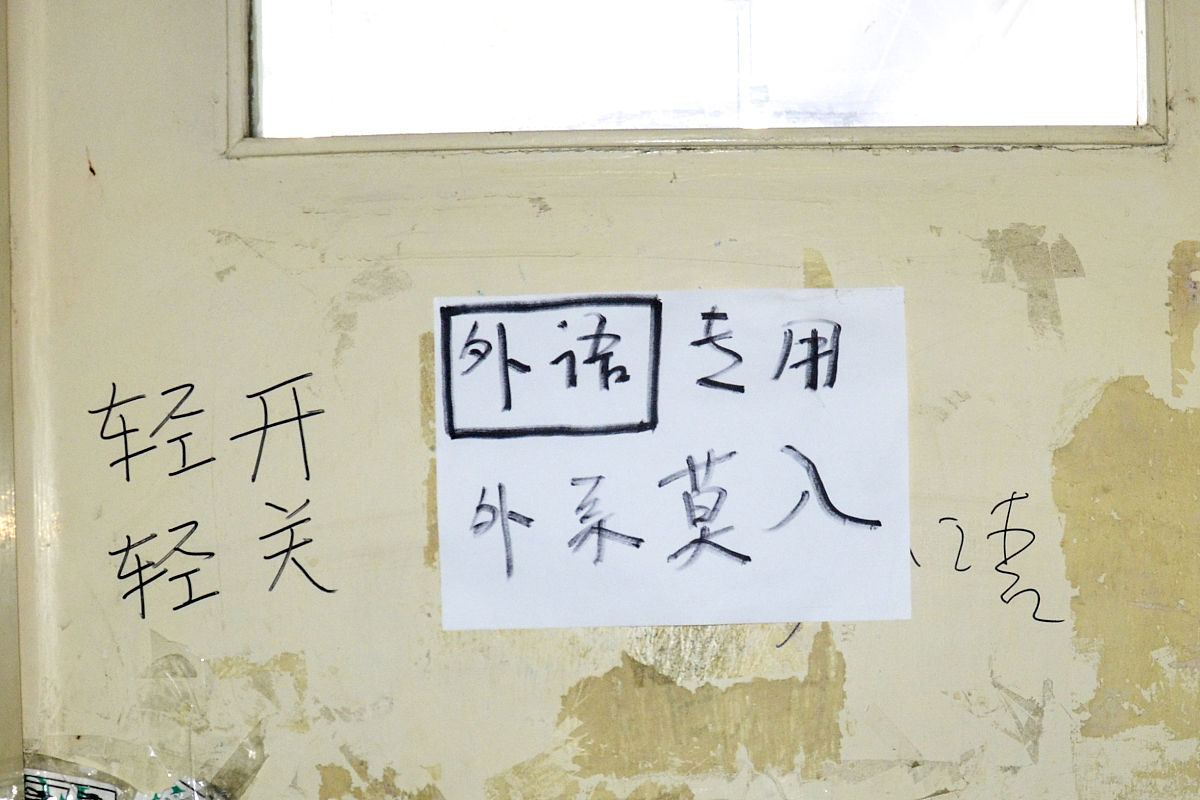 外语专用
外系莫入
轻开
轻关